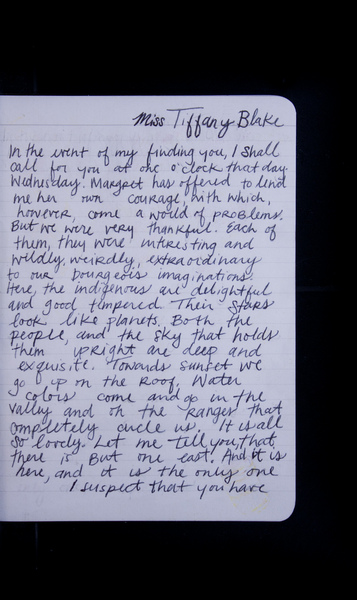 Miss Tiffany Blake
In the event of my finding you, I shall
call for you at one o'clock that day.
Wednesday. Margret has offered to lend
me her own courage, with which,
however, come a world of problems.
But we were very thankful. Each of
them, they were interesting and
wildly, weirdly, extraordinary
to our bourgeois imaginations.
Here, the indigenous are delightful
and good tempered. Their stars
look like planets. Both the
people, and the sky that holds
them upright are deep and
exquisite. Towards sunset we
go up on the roof. Water
colors come and go in the
valley and on the ranges that
completely circle us. It is all
so lovely. Let me tell you, that
there is But one east. And it is
here, and it is the only one
I suspect that you have